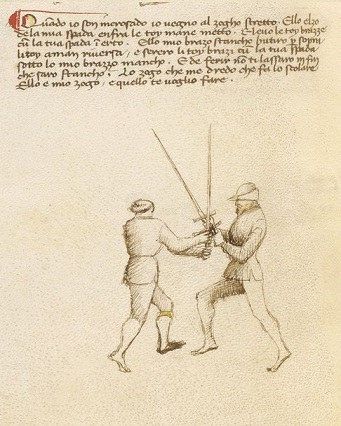 Quādo io son incrosado io vegno al zogho stretto. Ello elzo
de la mia spada enfra le toy mane metto. E levo le toy brazze
cū la tua spada in erto. Ello mio brazo stancho buterò p sopra
li toy a man riversa, e sererò li toy brazi cū la tua spada
sotto lo mio brazzo mancho. E de ferir nō ti lassarò infin
che sarò stancho. Lo zogo che me dredo che fa lo scolaro
Ello e mio zogo, e quello te voglio fare.